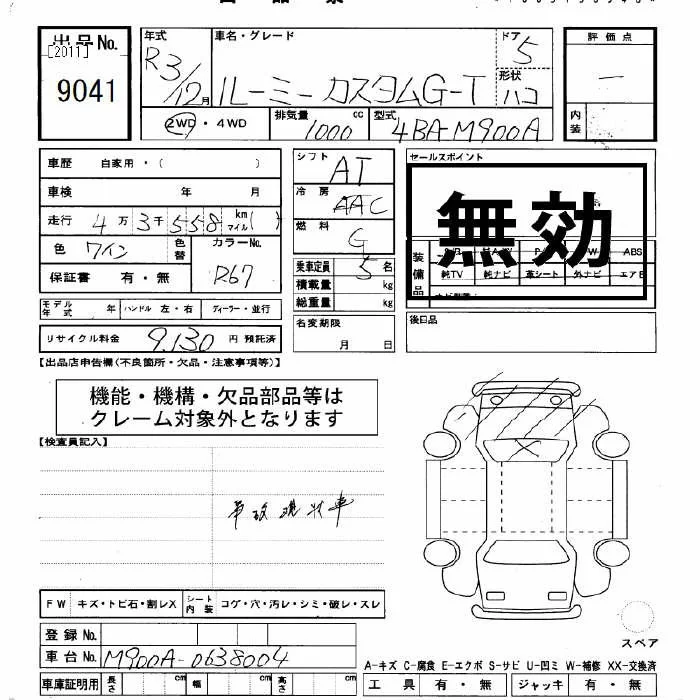 出品No.
[2011]
9041
年式
R3/12月
車名・グレード
ルーミー カスタムG-T
ドア
5
形状
ハコ
評価点
一
内装
2WD・4WD
排気量
1000 cc
型式
4BA-M900A
車歴 自家用・( )
車検 年 月
走行 4万3千558 km マイル( )
色 ワイン
色替
カラーNo.
R67
保証書 有・無
モデル年式 年 ハンドル 左・右 ディーラー・並行
リサイクル料金 9,130 円 預託済
シフト
AT
冷房
AAC
燃料
G
乗車定員 5 名
積載量 kg
総重量 kg
名変期限
月 日
セールスポイント
無効
装備品
ABS
純TV 純ナビ 革シート 外ナビ エアB
後日品
【出品店申告欄(不良箇所・欠品・注意事項等)】
機能・機構・欠品部品等は
クレーム対象外となります
【検査員記入】
事故現状車
FW キズ・トビ石・割レX シート内装 コゲ・穴・汚レ・シミ・破レ・スレ
登録No.
車台No. M900A-0638004
車庫証明用 長さ cm 幅 cm 高さ cm
スペア
A-キズ C-腐食 E-エクボ S-サビ U-凹ミ W-補修 XX-交換済
工具 有・無 ジャッキ 有・無